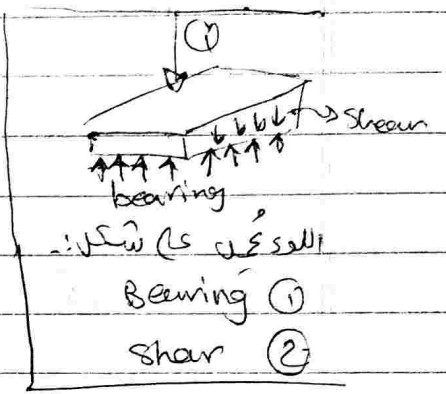 ①
shear
bearing
اللود عُمل على شكل :-
Bearing ①
shear ②